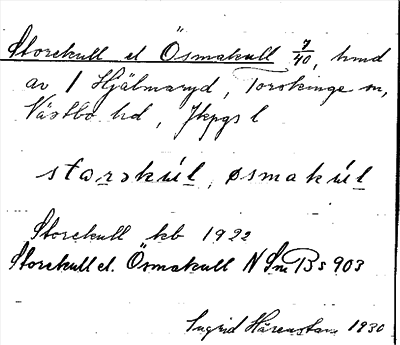 Storekull el Ösmakull 7/40, hmd
av 1 Hjälmaryd, Torskinge sn,
Västbo hd, Jkpgs l
starskúl, øsmakúl
Storekull kb 1922
Storekull el. Ösmakull N Sm Bs 903
Ingrid Härenstam 1930